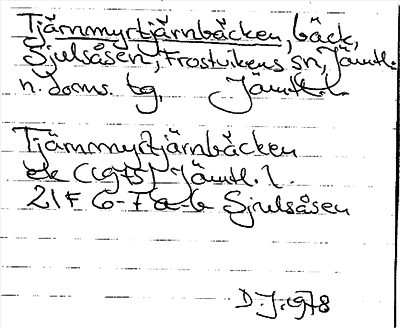 Tjärnmyrtjärnbäcken, bäck,
Sjulsåsen, Frostvikens sn, Jämtl.
n. doms. tg, Jämtl. l.
Tjärnmyrtjärnbäcken
ek (1975) Jämtl. l.
21F 6-7 a-b Sjulsåsen
D.J. 1978